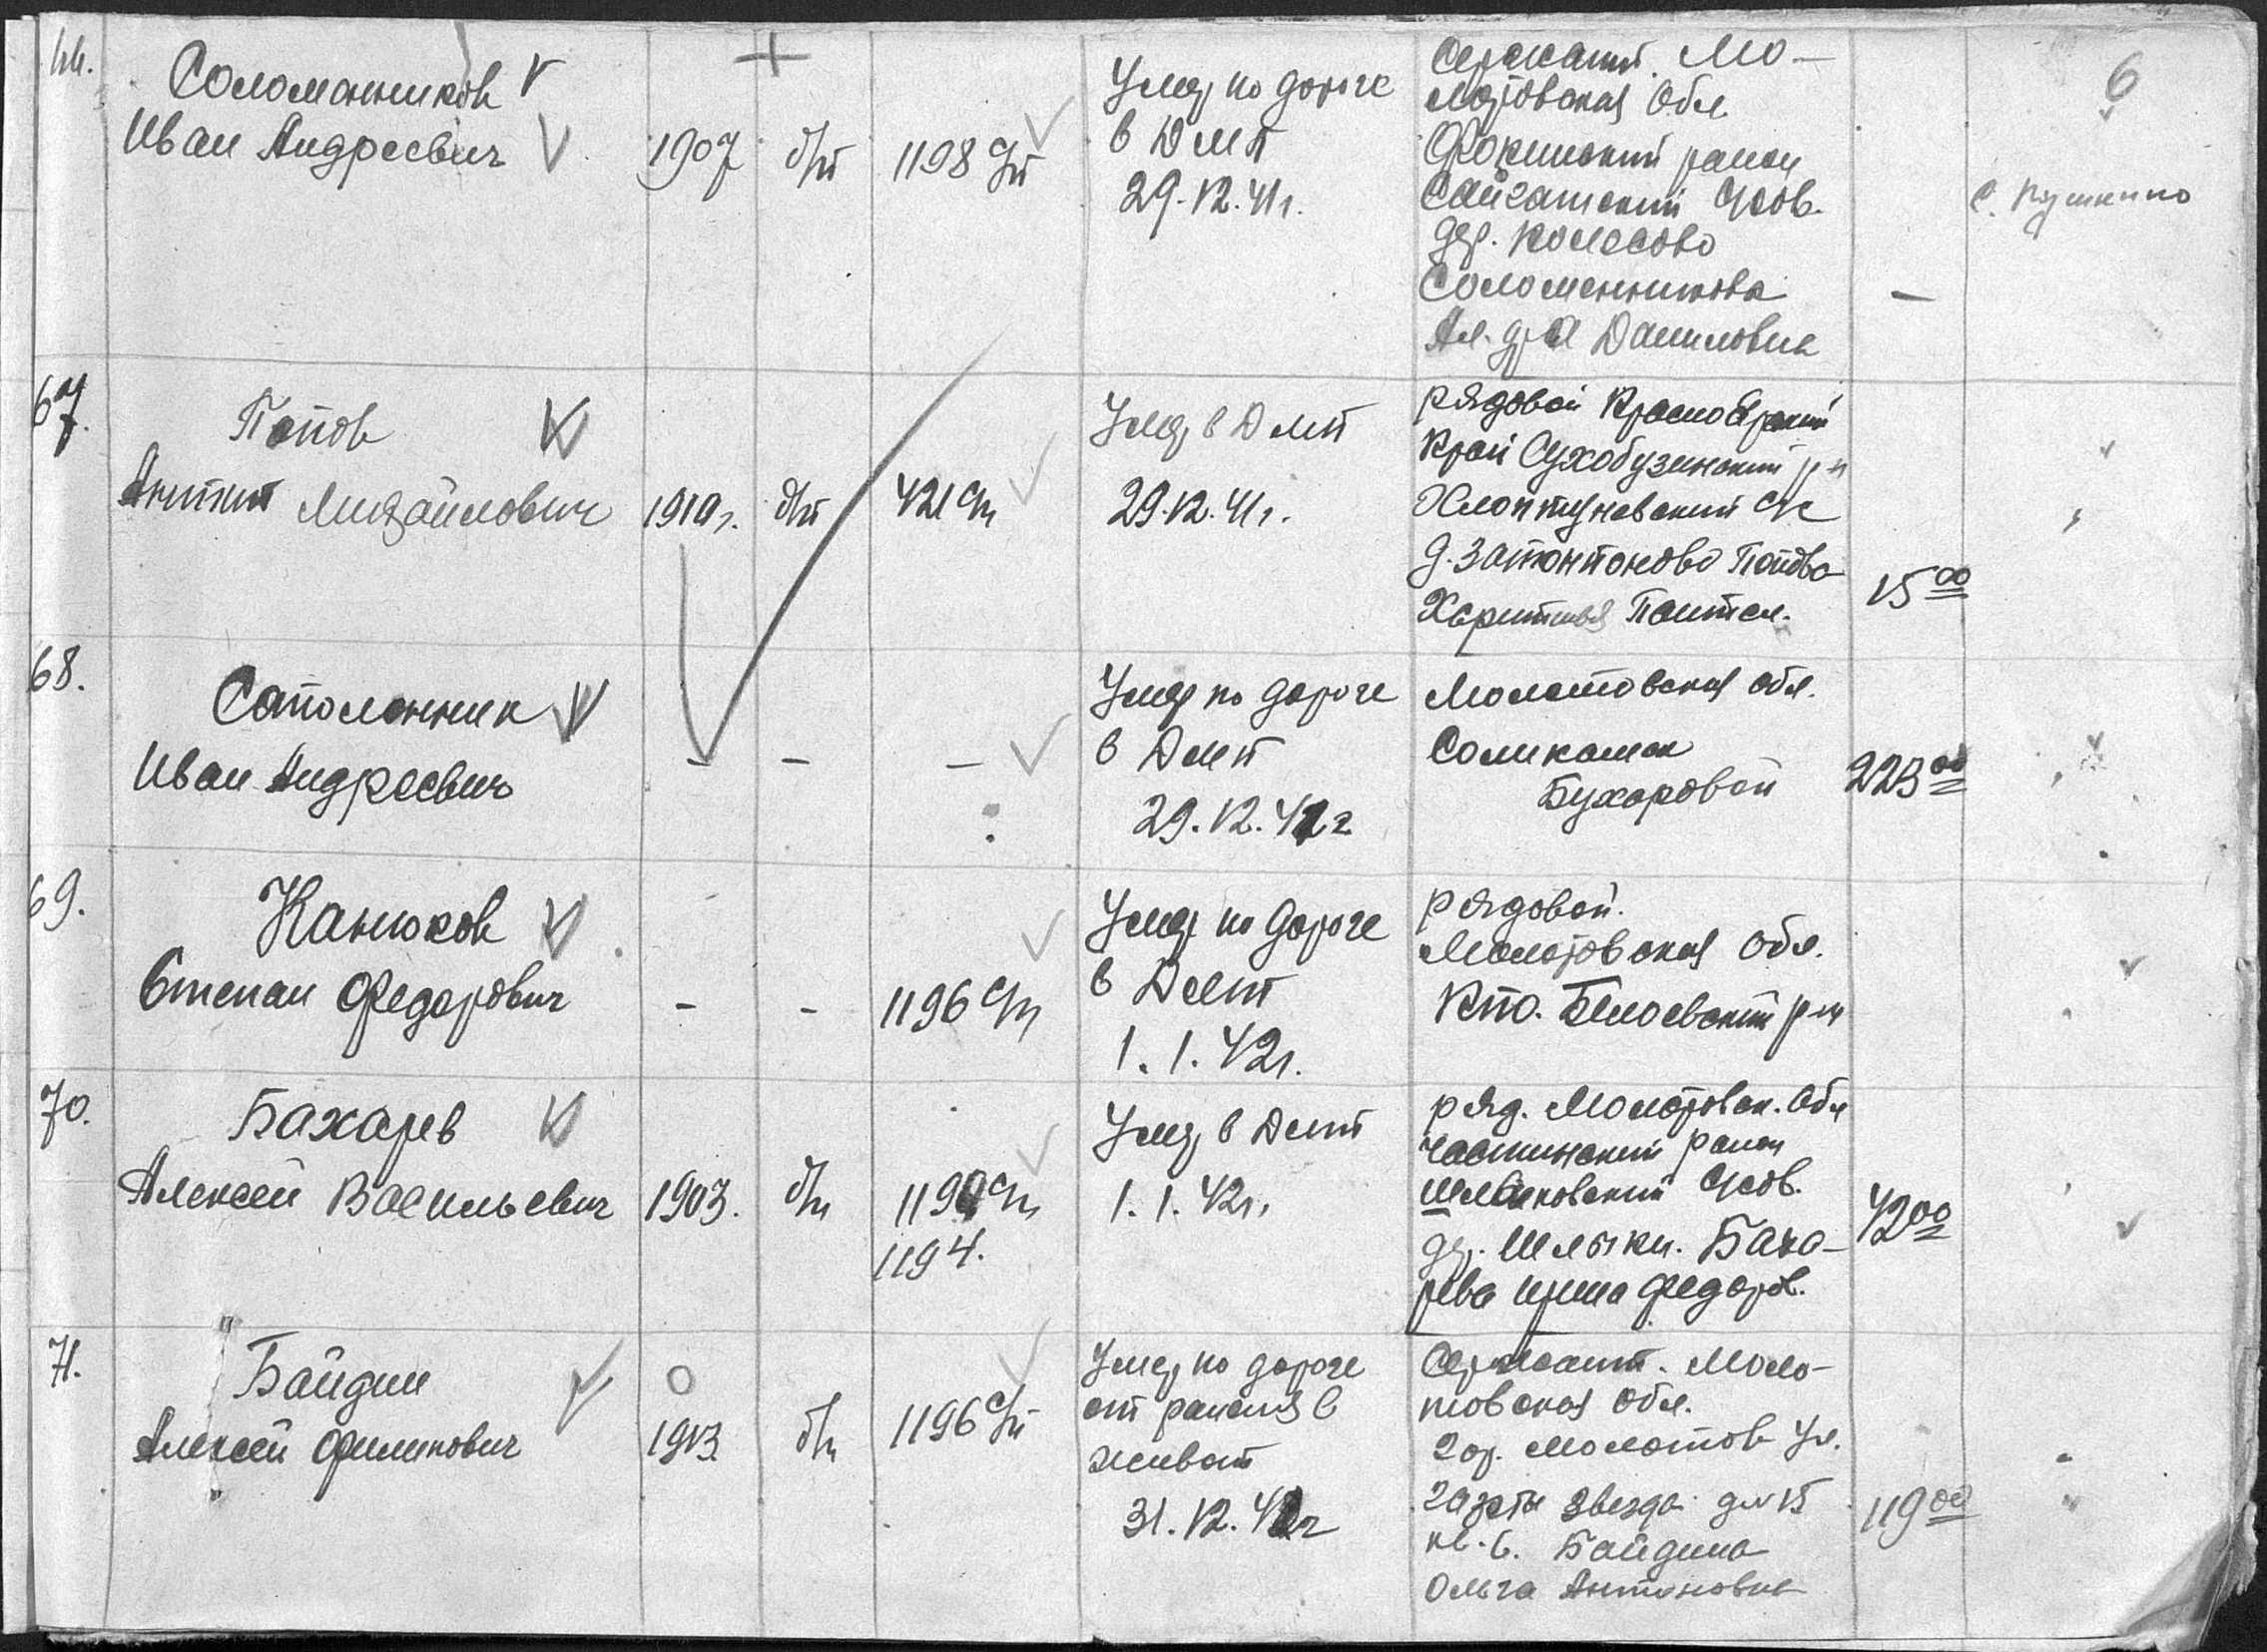 6
66.
Соломенников
Иван Андреевич
1907
б/п
1198 с/п
Умер по дороге
в ДМП
29.12.41г.
Сержант. Мо-
лотовская Обл
Фокинский район
Сайгатский с/сов.
дер. Колесово
Соломенникова
Даниловна
—
с. Пушкино
67.
Попов
Антип Михайлович
1910г.
б/п
421 сп
Умер в ДМП
29.12.41г.
рядовой Красноярский
Край Сухобузинский р-н
Хлоптуновский с/с
д. Попова
Пантел.
15 00
68.
Сапоменник
Иван Андреевич
–
–
–
Умер по дороге
в ДМП
29.12.41г
Молотовская обл.
Соликамск
Бухаровой
223 00
69.
Канюков
Степан Федорович
–
–
1196 с/п
Умер по дороге
в ДМП
1.1.42г.
рядовой.
Молотовская обл.
КПО. Белоевский р-н
70.
Бахарев
Алексей Васильевич
1903.
б/п
1196 с/п
1194.
Умер в ДМП
1.1.42г.
ряд. Молотовск. Обл
Частинский район
с/сов.
дер. Шлыки. Баха-
рева Ирина Федоров.
42 00
71.
Байдин
Алексей Филипович
1913
б/п
1196 с/п
Умер по дороге
от ранения в
живот
31.12.41г
Сержант. Моло-
товская обл.
гор. Молотов ул.
газеты Звезда дом 15
кв. 6. Байдина
Ольга Антоновна
119 00